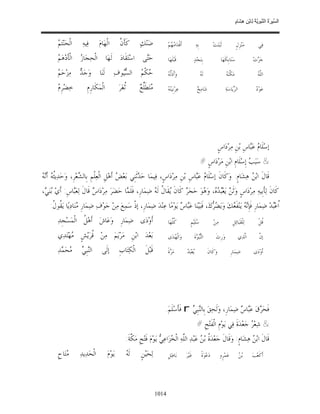 السِّيرَةُ النَّبَوِيَّةُ لابْنِ هِشَامٍ
فِي مَنْزِلٍ ثَبَتَتْ بِهِ أَقْدَامُهُمْ ضَنْكٍ كَأَنَّ الْهَامَ فِيهِ الْحَنْتَمُ
جَرَّتْ سَنَابِكَهَا بِنَجْدٍ قَبْلَهَا حَتَّى اسْتَقَادَ لَهَا الْحِجَازُ الْأَدْهَمُ
اللَّهُ مَكَّنَهُ لَهُ وَأَذَلَّهُ حُكْمُ السُّيُوفِ لَنَا وَجَدٌّ مِزْحَمُ
عَوْدُ الرِّيَاسَةِ شَامِخٌ عِرْنِينُهُ مُتَطَلِّعٌ ثُغَرَ الْمَكَارِمِ خِضْرِمُ
إسْلَامُ عَبَّاسِ بْنِ مِرْدَاسٍ
سَبَبُ إسْلَامِ ابْنِ مَرْدَاسٍ
قَالَ ابْنُ هِشَامٍ: وَكَانَ إسْلَامُ عَبَّاسِ بْنِ مِرْدَاسٍ، فِيمَا حَدَّثَنِي بَعْضُ أَهْلِ الْعِلْمِ بِالشِّعْرِ، وَحَدِيثُهُ أَنَّهُ
كَانَ لِأَبِيهِ مِرْدَاسٍ وَثَنٌ يَعْبُدُهُ، وَهُوَ حَجَرٌ كَانَ يُقَالُ لَهُ ضِمَارِ، فَلَمَّا حَضَرَ مِرْدَاسٌ قَالَ لِعَبَّاسٍ: أَيْ بُنَيَّ،
اُعْبُدْ ضِمَارِ فَإِنَّهُ يَنْفَعُكَ وَيَضُرُّكَ، فَبَيْنَا عَبَّاسٌ يَوْمًا عِنْدَ ضِمَارِ، إذْ سَمِعَ مِنْ جَوْفِ ضِمَارِ مُنَادِيًا يَقُولُ:
قُلْ لِلْقَبَائِلِ مِنْ سُلَيْمٍ كُلِّهَا أَوْدَى ضِمَارِ وَعَاشَ أَهْلُ الْمَسْجِدِ
إنَّ الَّذِي وَرِثَ النُّبُوَّةَ وَالْهُدَى بَعْدَ ابْنِ مَرْيَمَ مِنْ قُرَيْشٍ مُهْتَدِي
أَوْدَى ضِمَارِ وَكَانَ يُعْبَدُ مَرَّةً قَبْلَ الْكِتَابِ إلَى النَّبِيِّ مُحَمَّدِ
فَحَرَّقَ عَبَّاسٌ ضِمَارِ، وَلَحِقَ بِالنَّبِيِّ فَأَسْلَمَ.
شِعْرُ جَعْدَةَ فِي يَوْمِ الْفَتْحِ
قَالَ ابْنُ هِشَامٍ: وَقَالَ جَعْدَةُ بْنُ عَبْدِ اللَّهِ الْخُزَاعِيُّ يَوْمَ فَتْحِ مَكَّةَ:
أَكَعْبَ بْنَ عَمْرٍو دَعْوَةً غَيْرَ بَاطِلٍ لِحَيْنٍ لَهُ يَوْمَ الْحَدِيدِ مُتَاحِ
1014